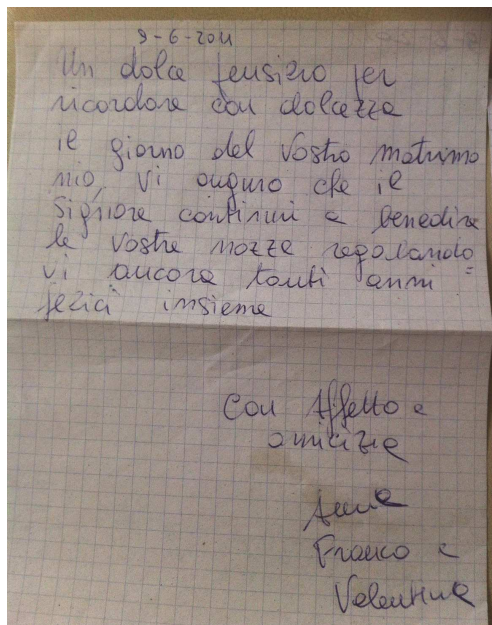 9-6-2011
Un dolce pensiero per
ricordare con dolcezza
il giorno del vostro matrimo
nio, vi auguro che il
Signore continui a benedire
le vostre nozze regalando=
vi ancora tanti anni
felici insieme
Con Affetto e
amicizia
Anna
Franco e
Valentina